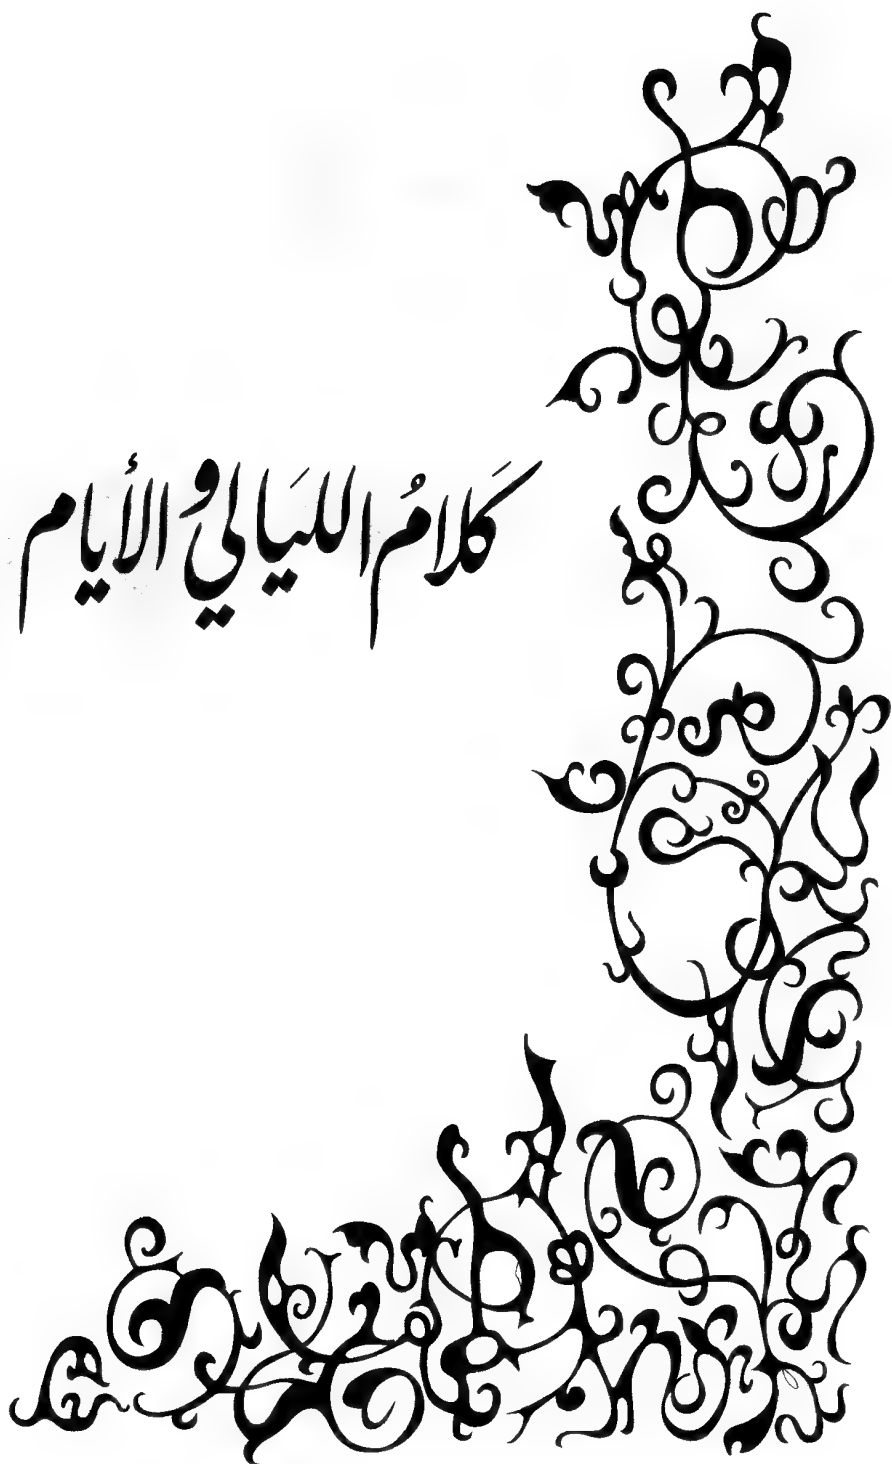 كَلامُ الليَالي و الأيام